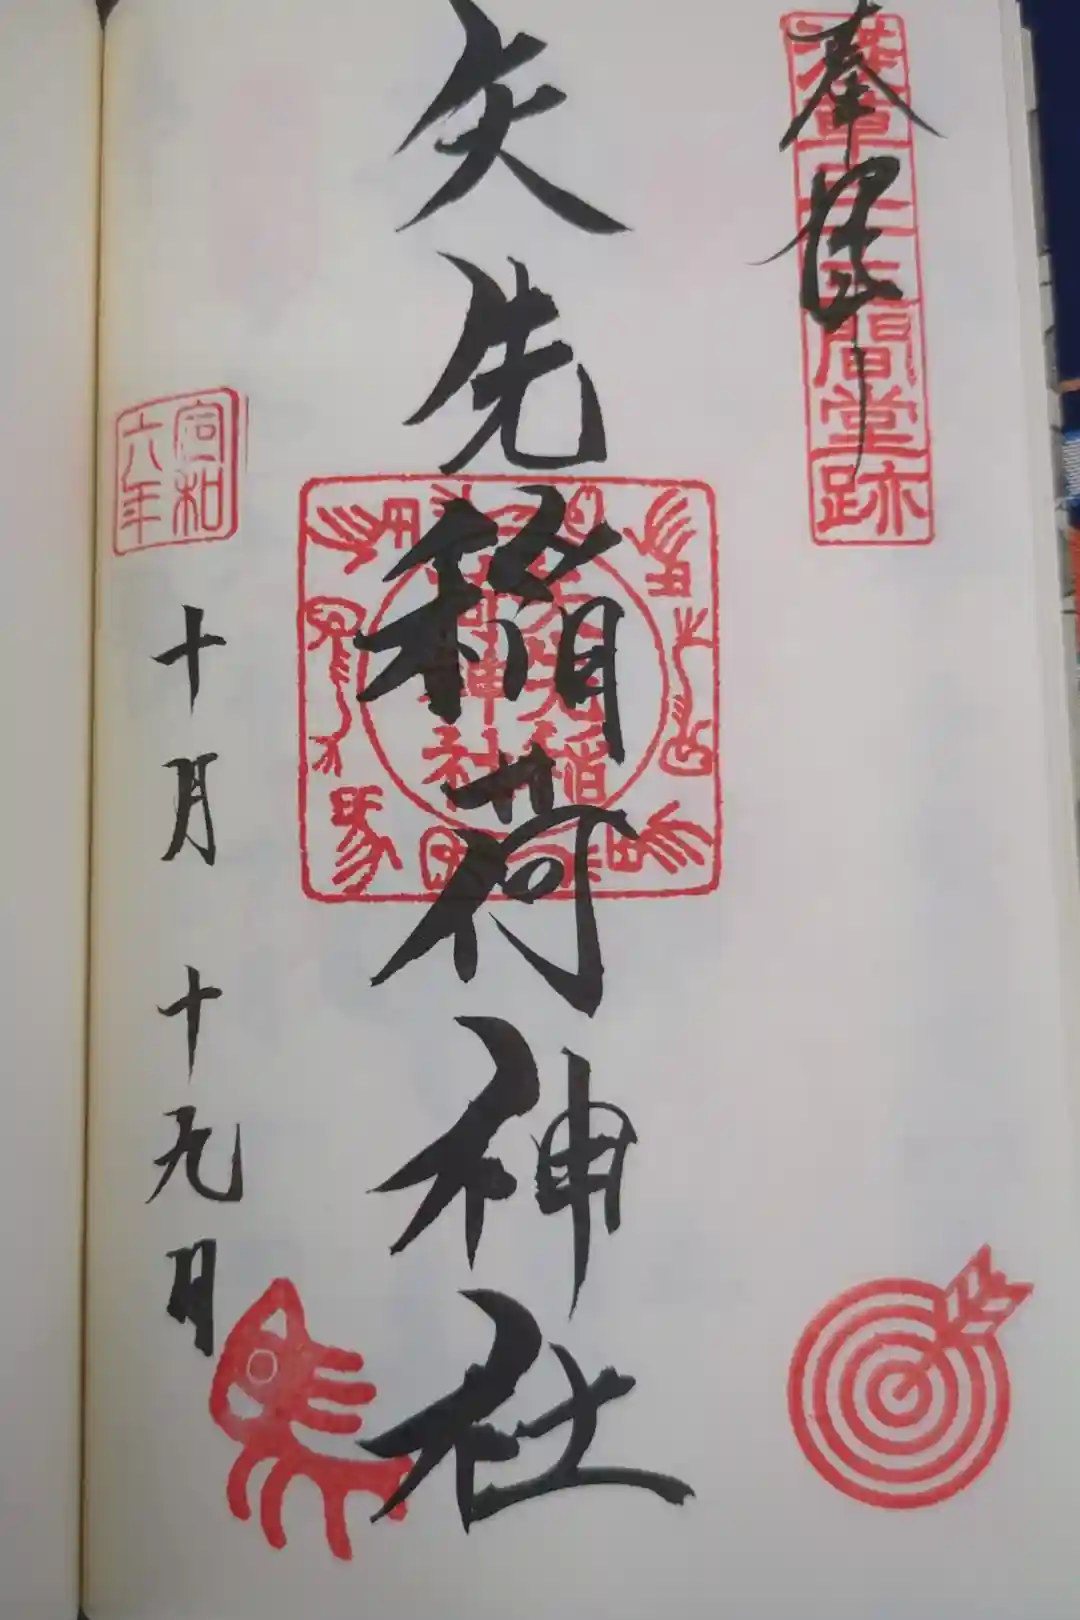 奉拝
浅草三十三間堂跡
矢先稲荷神社
矢先稲
荷神社
令和
六年
十月十九日